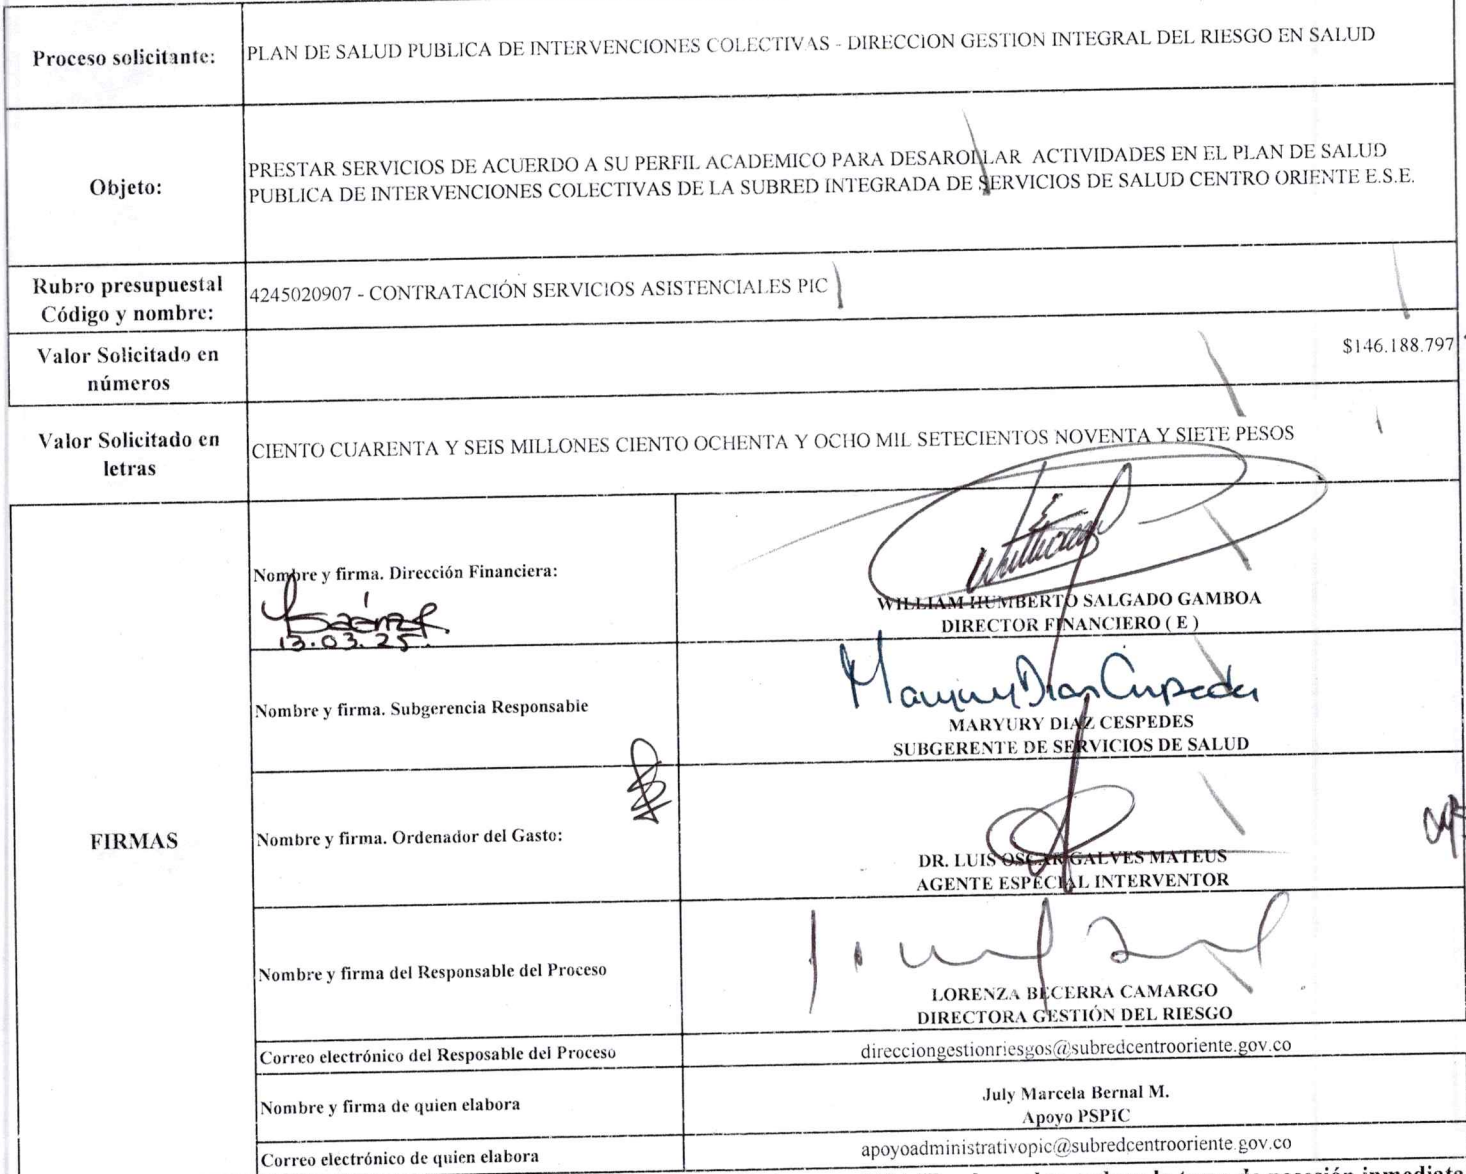 Proceso solicitante:
PLAN DE SALUD PUBLICA DE INTERVENCIONES COLECTIVAS - DIRECCION GESTION INTEGRAL DEL RIESGO EN SALUD
Objeto:
PRESTAR SERVICIOS DE ACUERDO A SU PERFIL ACADEMICO PARA DESAROLLAR ACTIVIDADES EN EL PLAN DE SALUD
PUBLICA DE INTERVENCIONES COLECTIVAS DE LA SUBRED INTEGRADA DE SERVICIOS DE SALUD CENTRO ORIENTE E.S.E.
Rubro presupuestal
Código y nombre:
4245020907 - CONTRATACIÓN SERVICIOS ASISTENCIALES PIC
Valor Solicitado en
números
$146.188.797
Valor Solicitado en
letras
CIENTO CUARENTA Y SEIS MILLONES CIENTO OCHENTA Y OCHO MIL SETECIENTOS NOVENTA Y SIETE PESOS
FIRMAS
Nombre y firma. Dirección Financiera:
13.03.25.
WILLIAM HUMBERTO SALGADO GAMBOA
DIRECTOR FINANCIERO ( E )
Nombre y firma. Subgerencia Responsable
Maryury Diaz Cespedes
MARYURY DIAZ CESPEDES
SUBGERENTE DE SERVICIOS DE SALUD
Nombre y firma. Ordenador del Gasto:
DR. LUIS OSCAR GALVES MATEUS
AGENTE ESPECIAL INTERVENTOR
Nombre y firma del Responsable del Proceso
LORENZA BECERRA CAMARGO
DIRECTORA GESTIÓN DEL RIESGO
Correo electrónico del Resposable del Proceso
direcciongestionriesgos@subredcentrooriente.gov.co
Nombre y firma de quien elabora
July Marcela Bernal M.
Apoyo PSPIC
Correo electrónico de quien elabora
apoyoadministrativopic@subredcentrooriente.gov.co